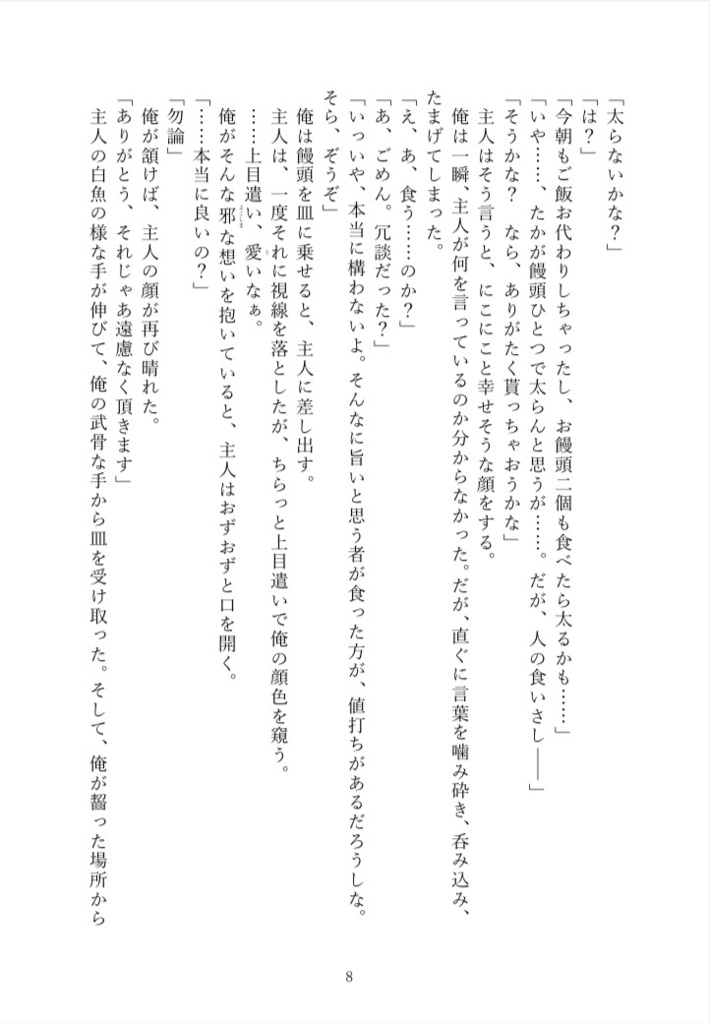 「太らないかな？」
「は？」
「今朝もご飯お代わりしちゃったし、お饅頭二個も食べたら太るかも……」
「いや……、たかが饅頭ひとつで太らんと思うが……。だが、人の食いさし――」
「そうかな？　なら、ありがたく貰っちゃおうかな」
主人はそう言うと、にこにこと幸せそうな顔をする。
俺は一瞬、主人が何を言っているのか分からなかった。だが、直ぐに言葉を噛み砕き、呑み込み、
たまげてしまった。
「え、あ、食う……のか？」
「あ、ごめん。冗談だった？」
「いっいや、本当に構わないよ。そんなに旨いと思う者が食った方が、値打ちがあるだろうしな。
そら、ぞうぞ」
俺は饅頭を皿に乗せると、主人に差し出す。
主人は、一度それに視線を落としたが、ちらっと上目遣いで俺の顔色を窺う。
……上目遣い、愛いなぁ。
俺がそんな邪な想いを抱いていると、主人はおずおずと口を開く。
「……本当に良いの？」
「勿論」
俺が頷けば、主人の顔が再び晴れた。
「ありがとう、それじゃあ遠慮なく頂きます」
主人の白魚の様な手が伸びて、俺の武骨な手から皿を受け取った。そして、俺が齧った場所から
8